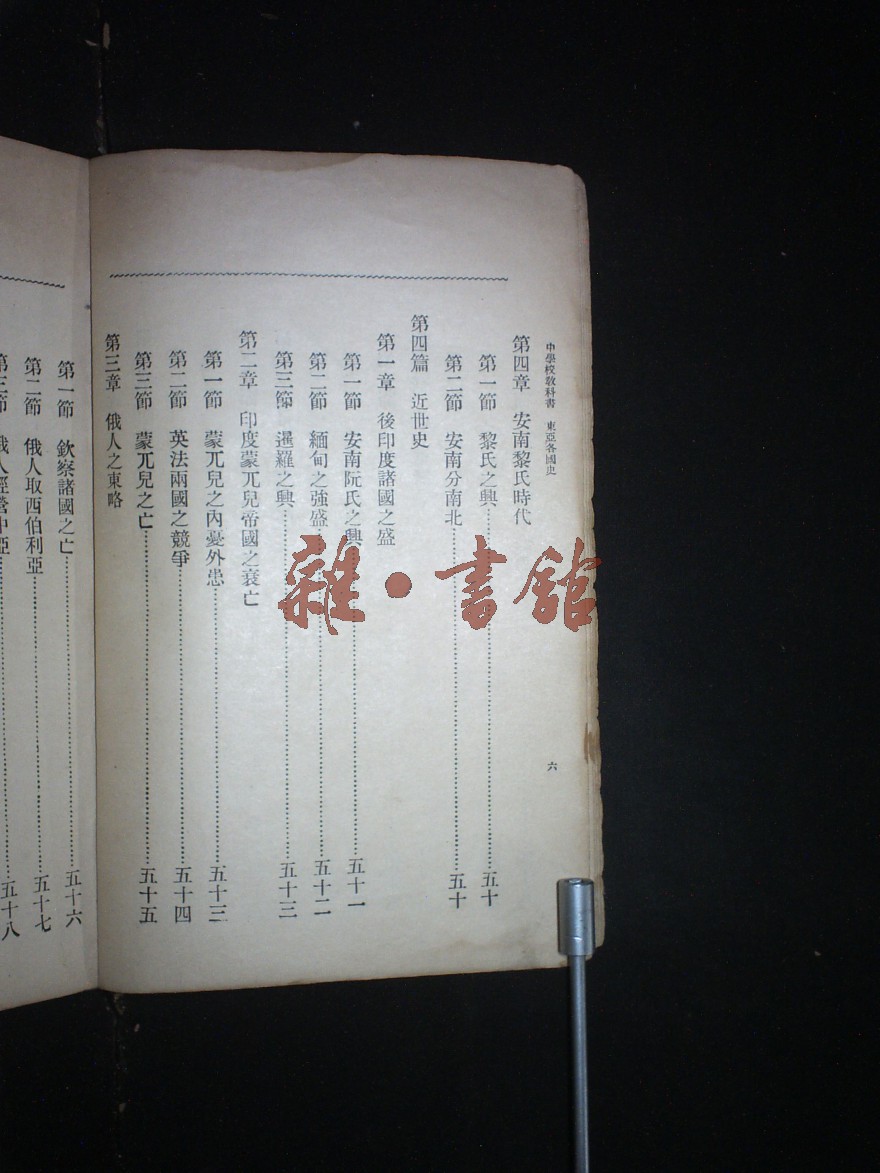 中學校敎科書　東亞各國史
六
第四章　安南黎氏時代
第一節　黎氏之興……五十
第二節　安南分南北……五十
第四篇　近世史
第一章　後印度諸國之盛
第一節　安南阮氏之興……五十一
第二節　緬甸之强盛……五十二
第三節　暹羅之興……五十三
第二章　印度蒙兀兒帝國之衰亡
第一節　蒙兀兒之內憂外患……五十三
第二節　英法兩國之競爭……五十四
第三節　蒙兀兒之亡……五十五
第三章　俄人之東略
第一節　欽察諸國之亡……五十六
第二節　俄人取西伯利亞……五十七
第三節　俄人經營中亞……五十八
雜·書館